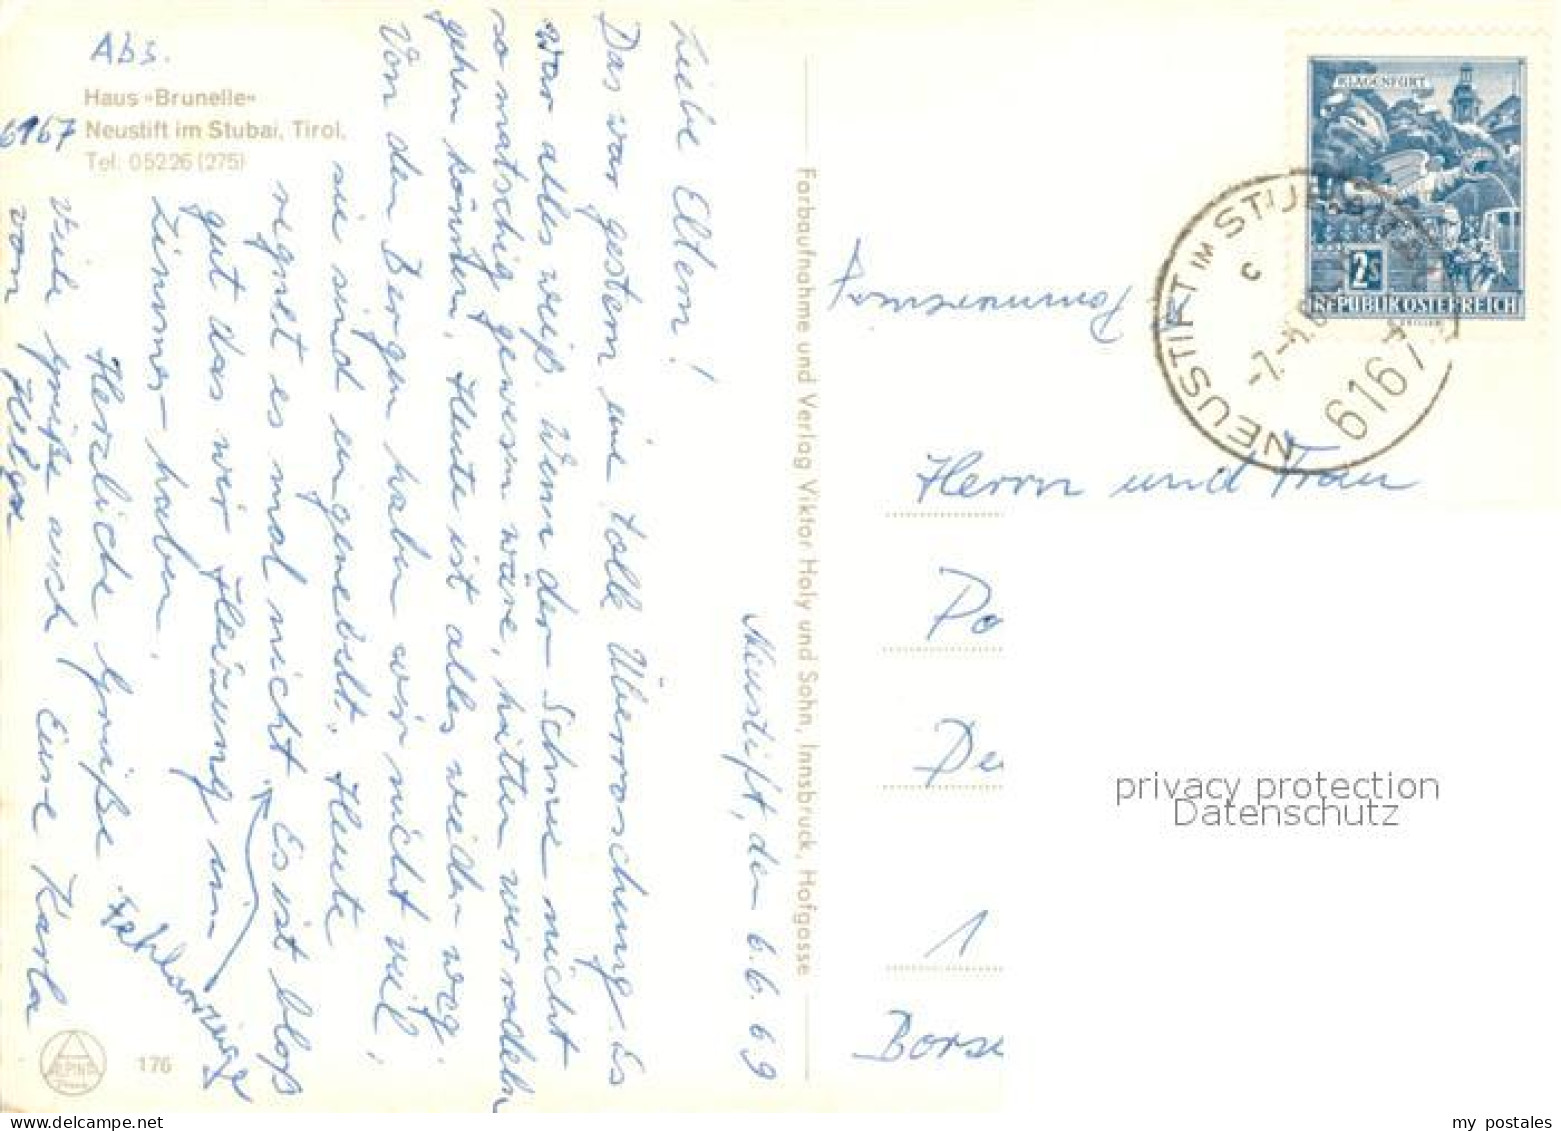 Abs.
Haus »Brunelle«
6167 Neustift im Stubai, Tirol.
Tel. 05226 (275)
Neustift, den 6.6.69
Liebe Eltern!
Das war gestern eine tolle Überraschung. Es
war alles weiß. Wenn der Schnee nicht
so matschig gewesen wäre, hätten wir rodeln
gehen können. Heute ist alles wieder weg.
Von den Bergen haben wir nicht viel,
sie sind eingenebelt. Heute
regnet es mal nicht. Es ist bloß
gut das wir Heizung im
Zimmer haben.
Herzliche Grüße
Viele Grüße auch Eure Karla
von Helga
176
Farbaufnahme und Verlag Viktor Holy und Sohn, Innsbruck, Hofgasse
KLAGENFURT
2S
REPUBLIK ÖSTERREICH
NEUSTIFT IM STUBAITAL
c
6167
Herrn und Frau
Po
De
1
Borse
privacy protection
Datenschutz
my postales